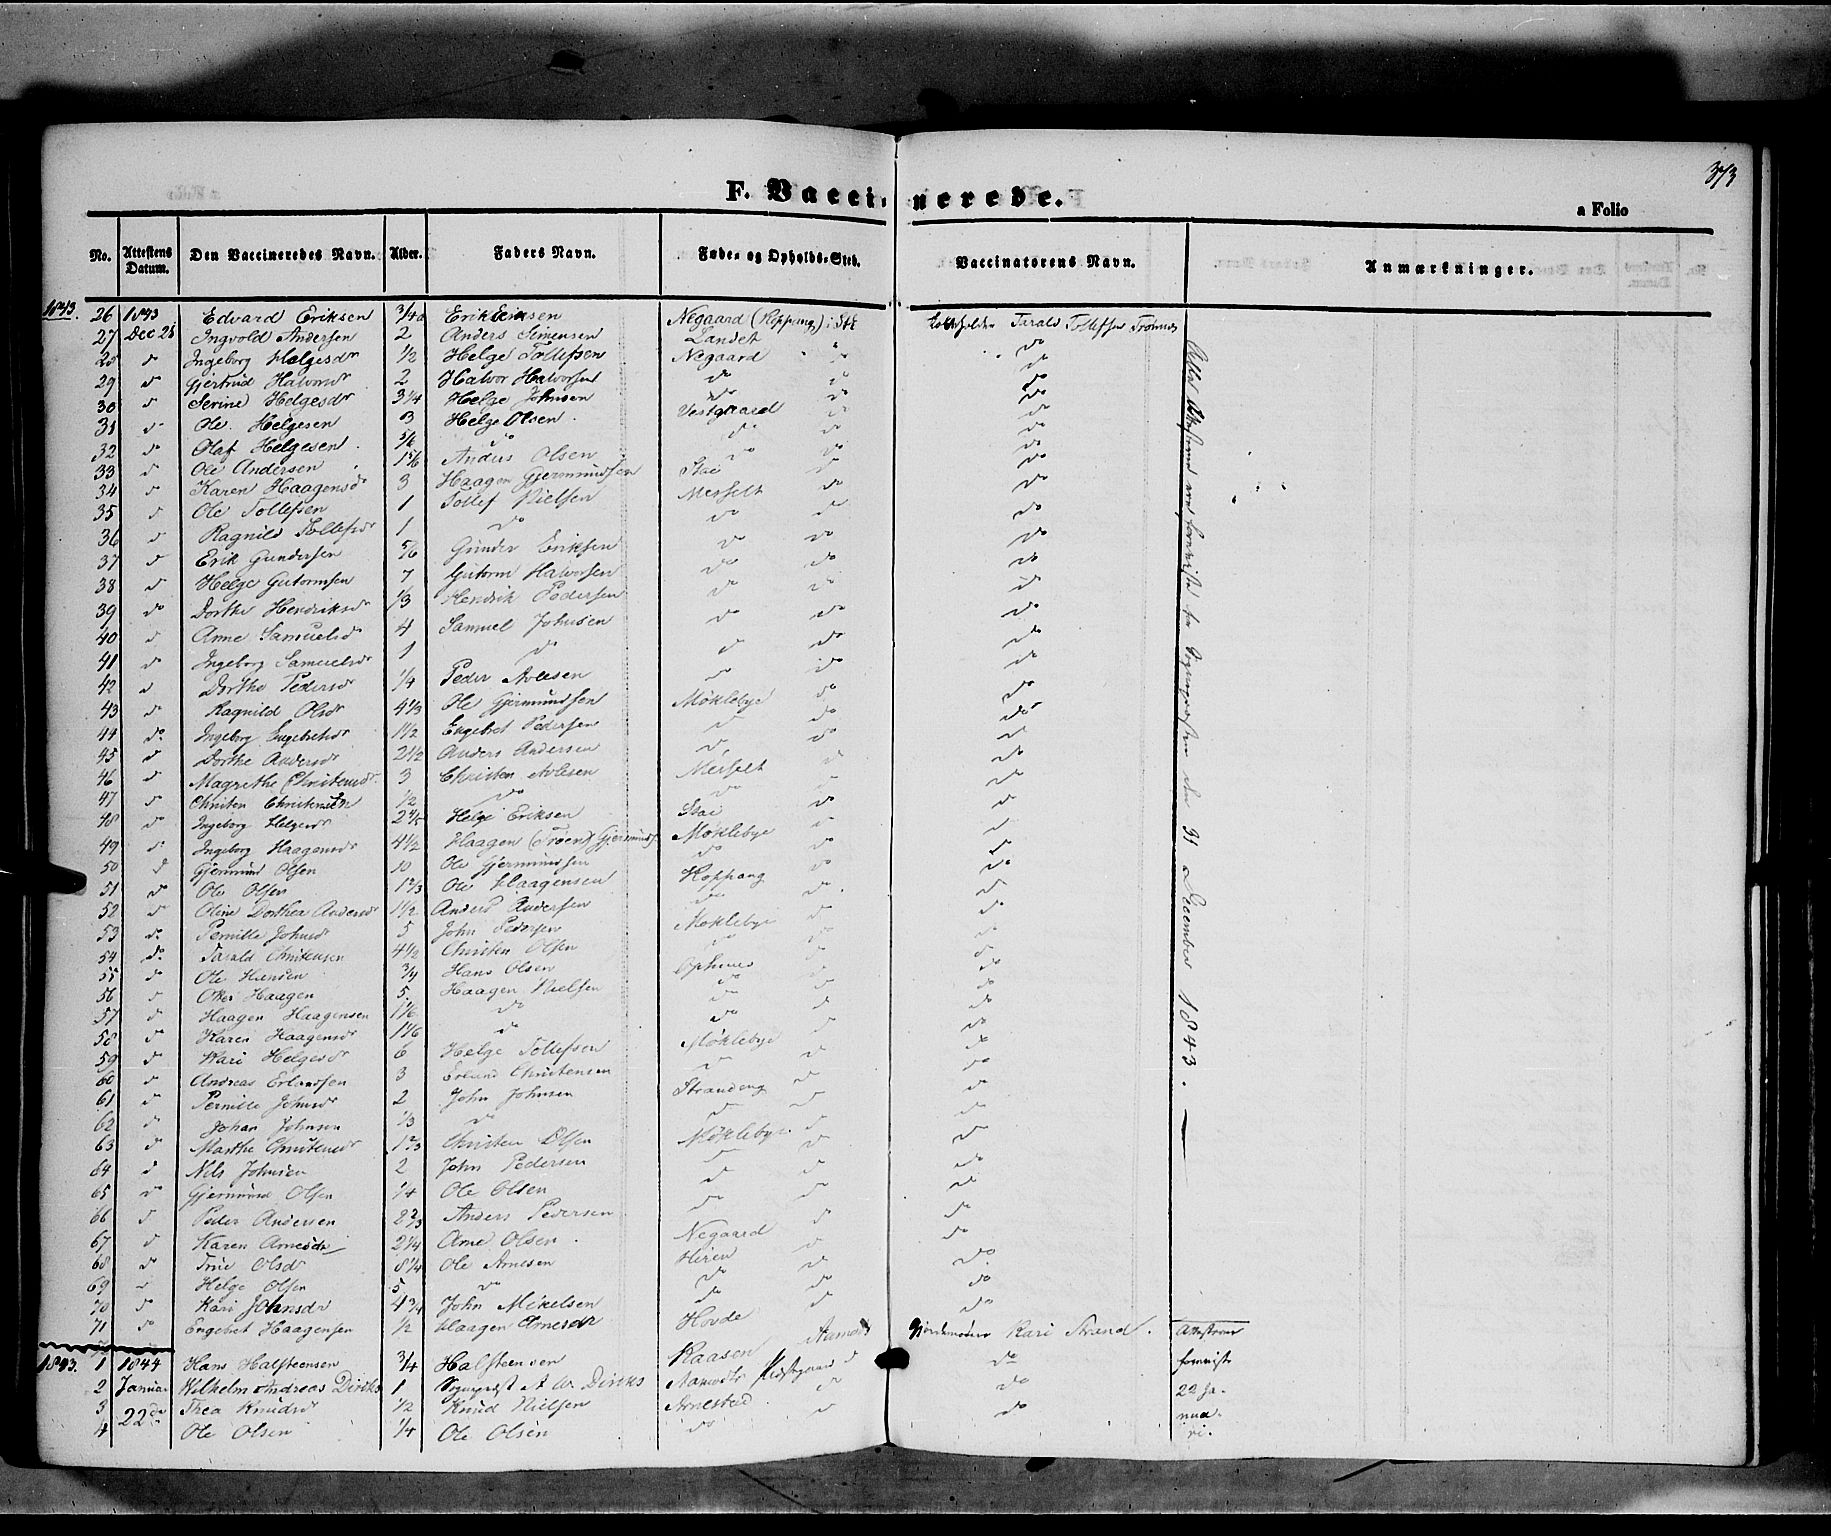 373
F. Vaccinerede.
a Folio
No. Attestens Datum. Den Vaccineredes Navn. Alder. Faders Navn. Føde- og Opholds-Sted. Vaccinatorens Navn. Anmærkninger.
1843. 26 1843 Edvard Eriksen 3/4 Erik Negaard (Koppang) i Tarald Tollefsen Trønnes
27 Dec 28 Ingvold Andersen 2 Anders Simensen Landet do
28 do Ingeborg Helgesdr 1/2 Helge Tollefsen Negaard do do
29 do Gjertrud Halvorsdr 2 Halvor Halvorsen do do do
30 do Serine Helgesdr 3 1/4 Helge Johnsen do do do
31 do Ole Helgesen 3 Helge Olsen Vestgaard do do
32 do Olaf Helgesen 5/6 do do do do
33 do Ole Andersen 1 5/6 Anders Olsen do do do
34 do Karen Haagensdr 3 Haagen Gjermundsen Stai do do
35 do Ole Tollefsen 1 Tollef Nielsen Messelt do do
36 do Ragnild Tollefsdr 1 do do do do
37 do Erik Gundersen 5/6 Gunder Eriksen do do do
38 do Helge Gutormsen 7 Gutorm Halvorsen do do do
39 do Dorthe Hendriksdr 1/3 Hendrik Pedersen do do do
40 do Anne Samuelsdr 4 Samuel Johnsen do do do
41 do Ingeborg Samuelsdr 1 do do do do
42 do Dorthe Pedersdr 1/4 Peder Arnesen do do do
43 do Ragnild Olsdr 4 1/3 Ole Gjermundsen Møklebye do do
44 do Ingeborg Engebretsdr 1 1/2 Engebret Pedersen do do do
45 do Dorthe Andersdr 2 1/2 Anders Andersen do do do
46 do Magrethe Christensdr 3 Christen Arnesen Messelt do do
47 do Christen Christensen 1/2 do do do do
48 do Ingeborg Helgesdr 2 Helge Eriksen Stai do do
49 do Ingeborg Haagensdr 4 1/2 Haagen (Troen) Gjermunds. Møklebye do do
50 do Gjermund Olsen 10 Ole Gjermundsen do do do
51 do Ole Olsen 1 2/3 Ole Haagensen Koppang do do
52 do Oline Dorthea Andersdr 1 1/2 Anders Andersen do do do
53 do Pernille Johnsdr 5 John Pedersen Møklebye do do
54 do Tarald Christensen 4 1/2 Christen Olsen do do do
55 do Ole Hansen 3/4 Hans Olsen Ophuus do do
56 do Haagen 5 Haagen Nielsen do do do
57 do Haagen Haagensen 1 1/6 do do do do
58 do Karen Haagensdr 1 1/6 do do do do
59 do Kari Helgesdr 6 Helge Tollefsen Møklebye do do
60 do Andreas Erlandsen 3 Erland Christensen do do do
61 do Pernille Johnsdr 2 John Johnsen Strandeng do do
62 do Johan Johnsen 1/3 do do do do
63 do Marthe Christensdr 1 2/3 Christen Olsen Møklebye do do
64 do Nils Johnsen 2 John Pedersen do do do
65 do Gjermund Olsen 1/4 Ole Olsen do do do
66 do Peder Andersen 2 2/3 Anders Pedersen do do do
67 do Karen Arnesdr 2 1/4 Arne Olsen Negaard do do
68 do Olsdr 8 1/4 Ole Arnesen Hiren do do
69 do Helge Olsen 5 do do do do
70 do Kari Johnsdr 4 3/4 John Mikelsen do do do
71 do Engebret Haagensen 1/2 Haagen Arnesdr Hovde
Attesterne ere foreviste for Sognepræsten den 31 December 1843.
1843. 1 1844 Hans Halsteensen 3/4 Halsteensen Kaasen Aamodt Gjordemoder Kari Strand. Attesterne
2 Januar Wilhelm Andreas Diriks 1 Sognepræst A. W. Diriks Aamodts Præstgaard do do foreviste
3 22de Thea Knudsdr 1/2 Knud Nielsen Arnestad do do 22 Ja-
4 Ole Olsen 1/4 Ole Olsen do do do nua-
ri.